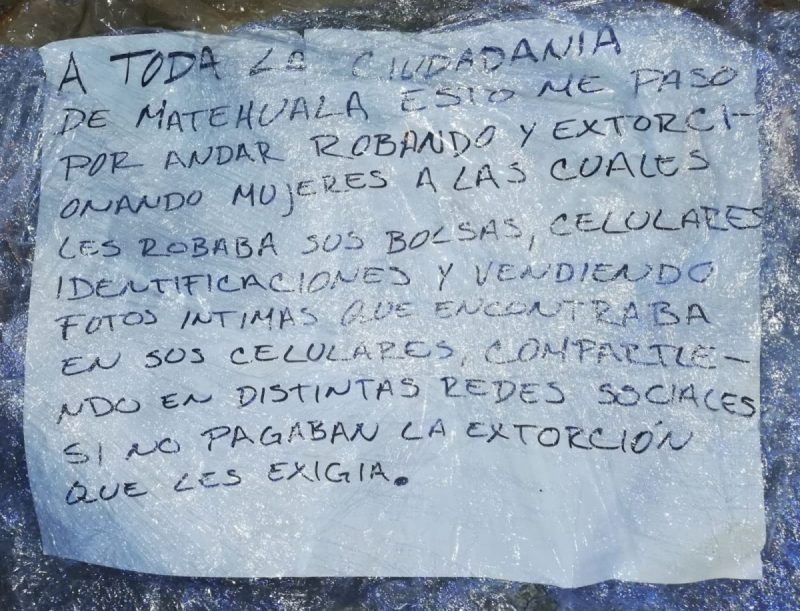 A TODA LA CIUDADANIA
DE MATEHUALA ESTO ME PASO
POR ANDAR ROBANDO Y EXTORCI-
ONANDO MUJERES A LAS CUALES
LES ROBABA SUS BOLSAS, CELULARES
IDENTIFICACIONES Y VENDIENDO
FOTOS INTIMAS QUE ENCONTRABA
EN SUS CELULARES, COMPARTIE-
NDO EN DISTINTAS REDES SOCIALES
SI NO PAGABAN LA EXTORCIÓN
QUE LES EXIGIA.